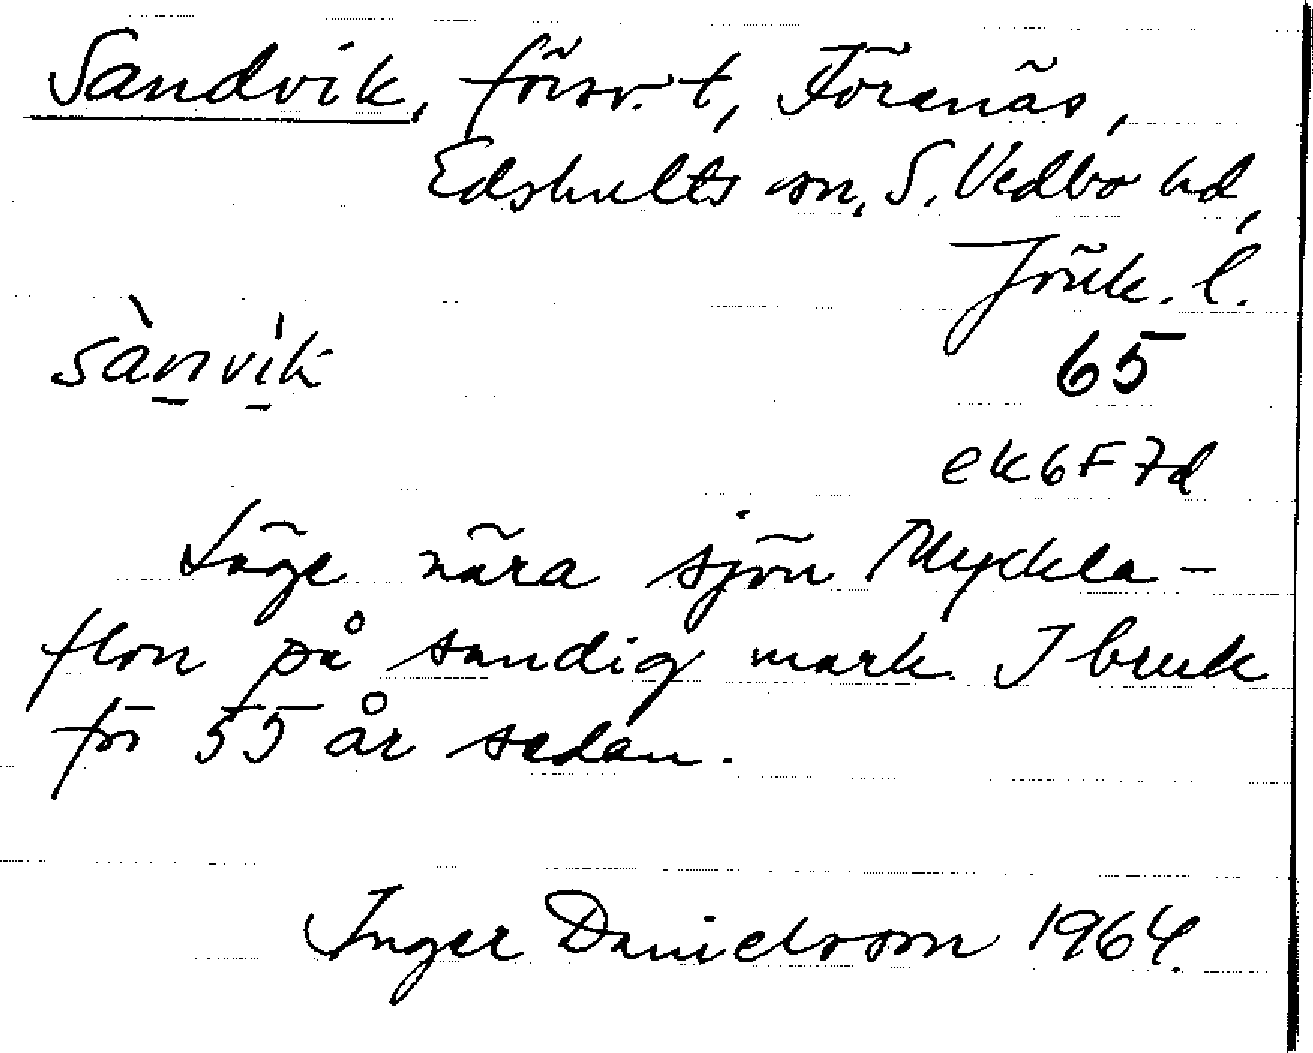 Sandvik, försv. t, Förenäs,
Edshults sn, S. Vedbo hd,
Jönk. l.
sànvìk
65
ek 6F7d
Läge nära sjön Myckla-
flon på sandig mark. I bruk
för 55 år sedan.
Inger Danielsson 1964.